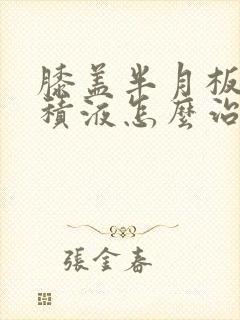 膝盖半月板
積液怎麼治
張金春